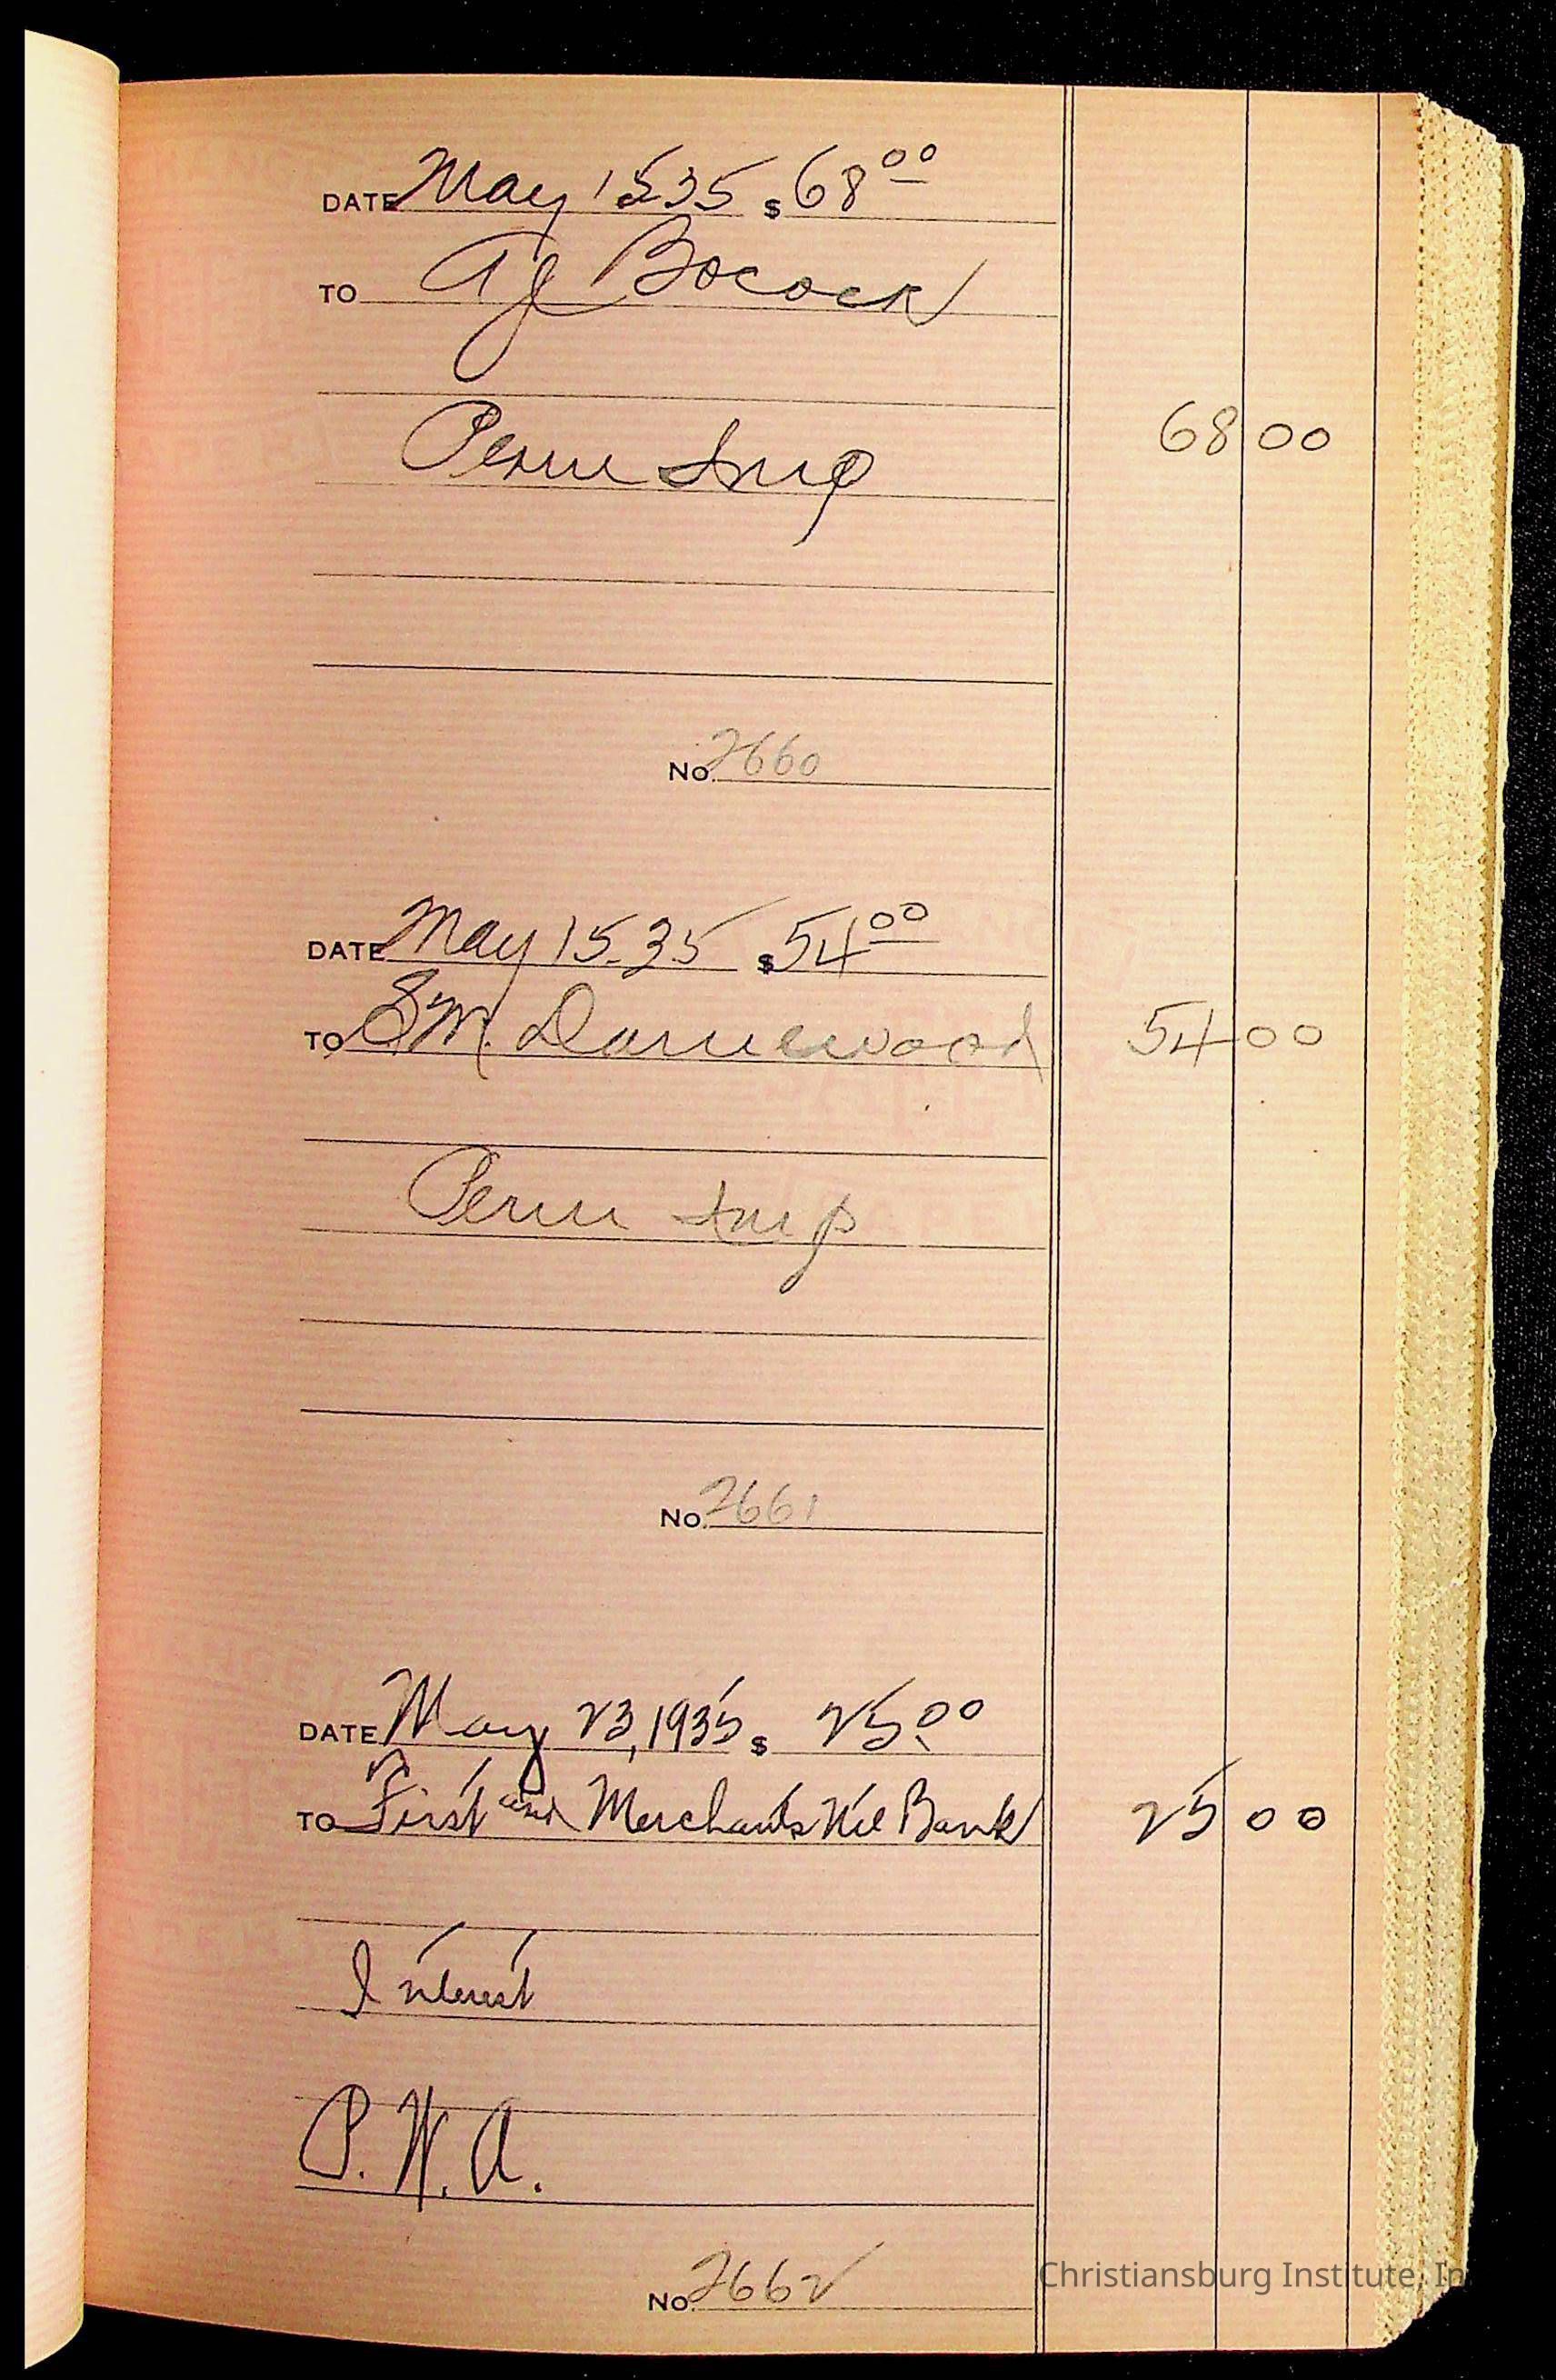 DATE May 15 35 $ 68 00
TO A J Bocock
Perm Imp 68 00
No. 2660
DATE May 15. 35 $ 54 00
TO S. M. 54 00
Perm Imp
No. 2661
DATE May 23, 1935 $ 25.00
TO First and Merchants Nil Bank 25 00
Interest
P. W. A.
No. 2662
Christiansburg Institute, In